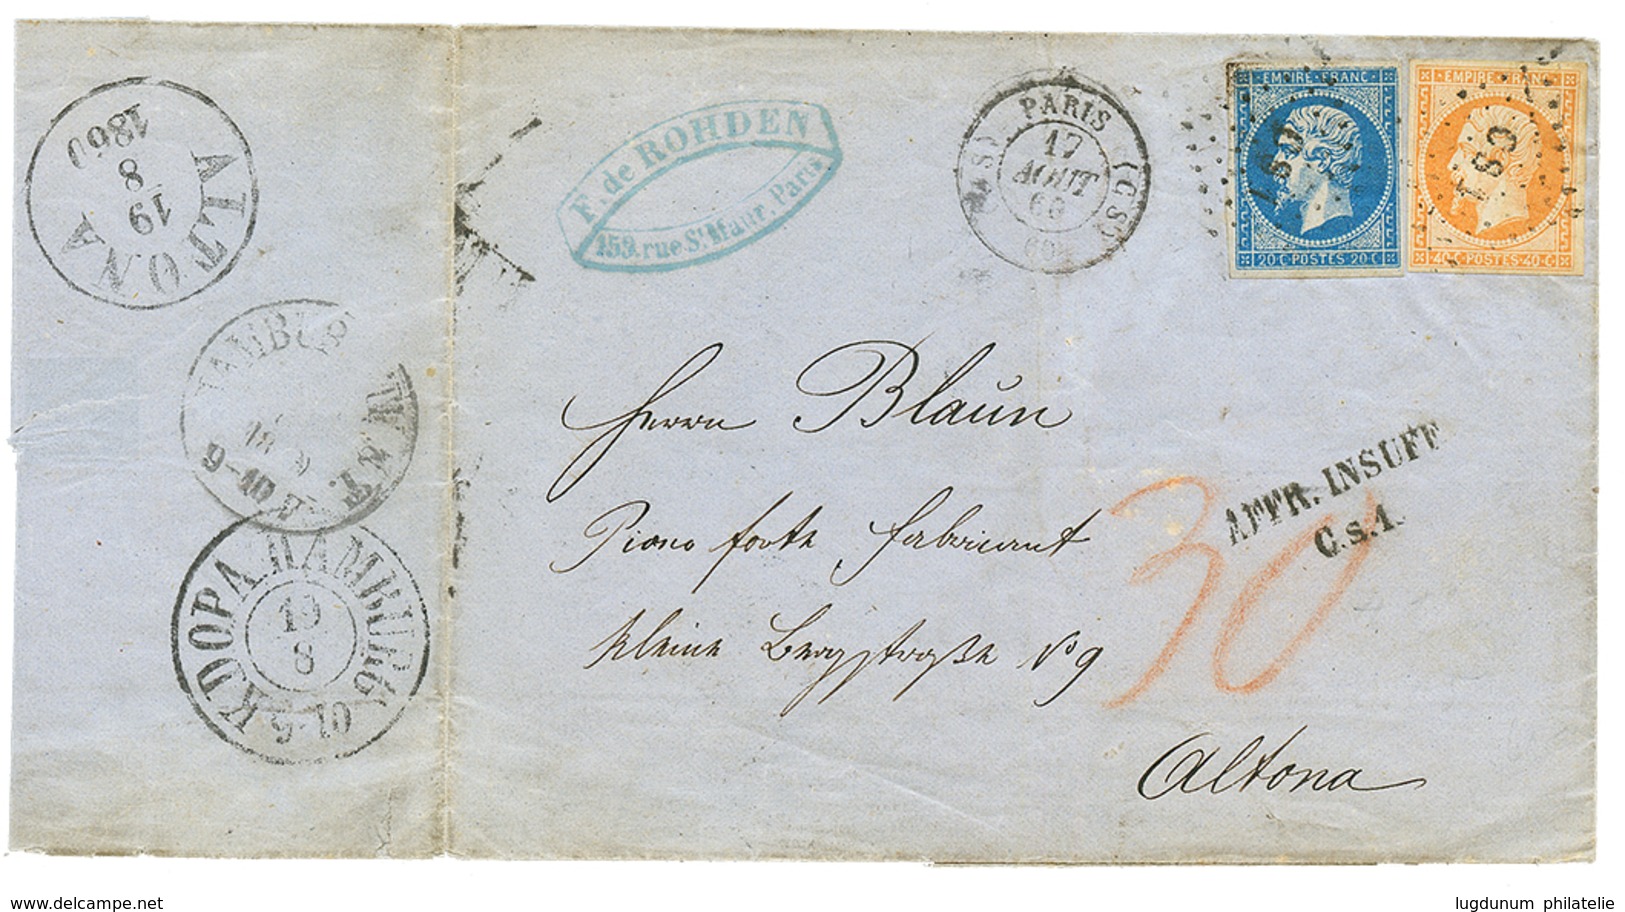 ALTONA
19
8
1860
HAMBURG
TH.&T.
9-10
K.D.O.P.A. HAMBURG
19
8
9-10
F. de ROHDEN
159. rue St. Maur. Paris
PARIS
(C.S)
(C.S)
17
AOUT
60
(60)
EMPIRE FRANC
20 C POSTES 20 C
EMPIRE FRANC
40 C POSTES 40 C
AFFR. INSUFF
C.s.1.
30
Herrn Blaun
Piano forth fabricant
Kleine Bergstraße No 9
Altona
delcampe.net
lugdunum philatelie